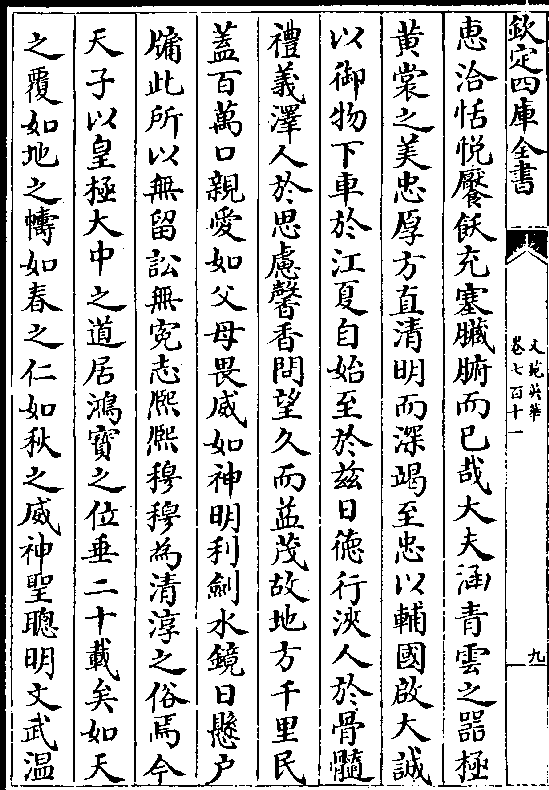 欽定四庫全書
文苑英華
卷七百十一
九
惠洽恬悦饜飫充塞臓腑而已哉大夫涵青雲之器極
黄裳之美忠厚方直清明而深竭至忠以輔國啟大誠
以御物下車於江夏自始至於兹日徳行浹人於骨髓
禮義澤人於思慮馨香問望久而益茂故地方千里民
蓋百萬口親愛如父母畏威如神明利劍水鏡日懸户
牖此所以無留訟無寃志熈熈穆穆為清淳之俗焉今
天子以皇極大中之道居鴻寳之位垂二十載矣如天
之覆如地之幬如春之仁如秋之威神聖聰明文武温